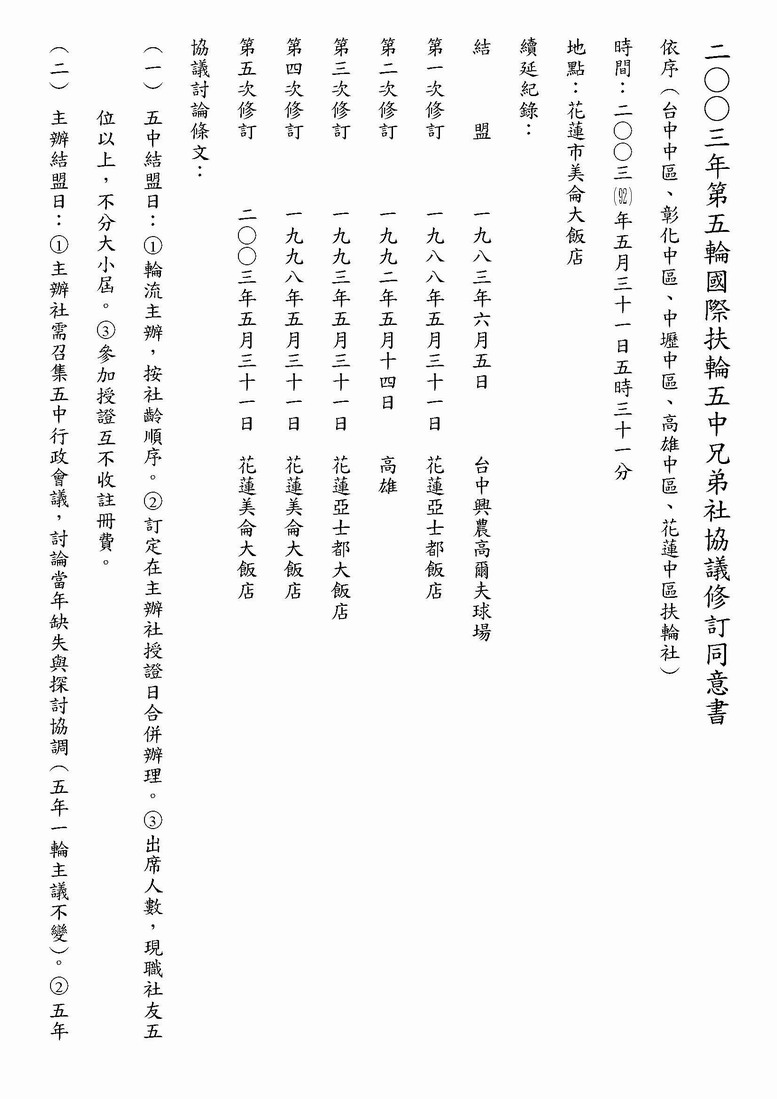 二〇〇三年第五輪國際扶輪五中兄弟社協議修訂同意書
依序（台中中區、彰化中區、中壢中區、高雄中區、花蓮中區扶輪社）
時間：二〇〇三(92)年五月三十一日五時三十一分
地點：花蓮市美侖大飯店
續延紀錄：
結　盟　一九八三年六月五日　台中興農高爾夫球場
第一次修訂　一九八八年五月三十一日　花蓮亞士都飯店
第二次修訂　一九九二年五月十四日　高雄
第三次修訂　一九九三年五月三十一日　花蓮亞士都大飯店
第四次修訂　一九九八年五月三十一日　花蓮美侖大飯店
第五次修訂　二〇〇三年五月三十一日　花蓮美侖大飯店
協議討論條文：
（一）五中結盟日：①輪流主辦，按社齡順序。②訂定在主辦社授證日合併辦理。③出席人數，現職社友五
位以上，不分大小屆。③參加授證互不收註冊費。
（二）主辦結盟日：①主辦社需召集五中行政會議，討論當年缺失與探討協調（五年一輪主議不變）。②五年